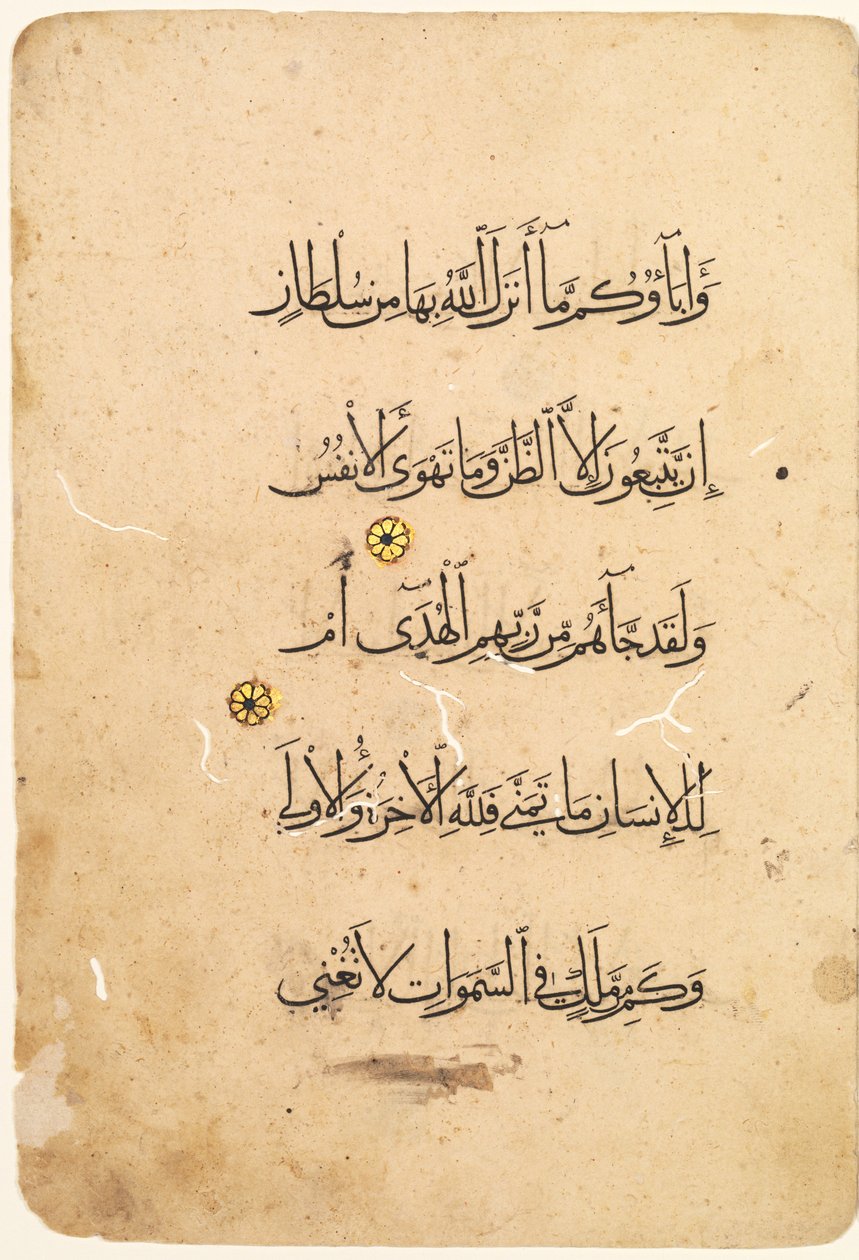 وَءَابَآؤُكُم مَّآ أَنزَلَ ٱللَّهُ بِهَا مِن سُلْطَانٍ
إِن يَتَّبِعُونَ إِلَّا ٱلظَّنَّ وَمَا تَهْوَى ٱلْأَنفُسُ
وَلَقَدْ جَآءَهُم مِّن رَّبِّهِمُ ٱلْهُدَىٓ أَمْ
لِلْإِنسَانِ مَا تَمَنَّى فَلِلَّهِ ٱلْأَخِرَةُ وَٱلْأُولَى
وَكَم مِّن مَّلَكٍ فِي ٱلسَّمَوَاتِ لَا تُغْنِي